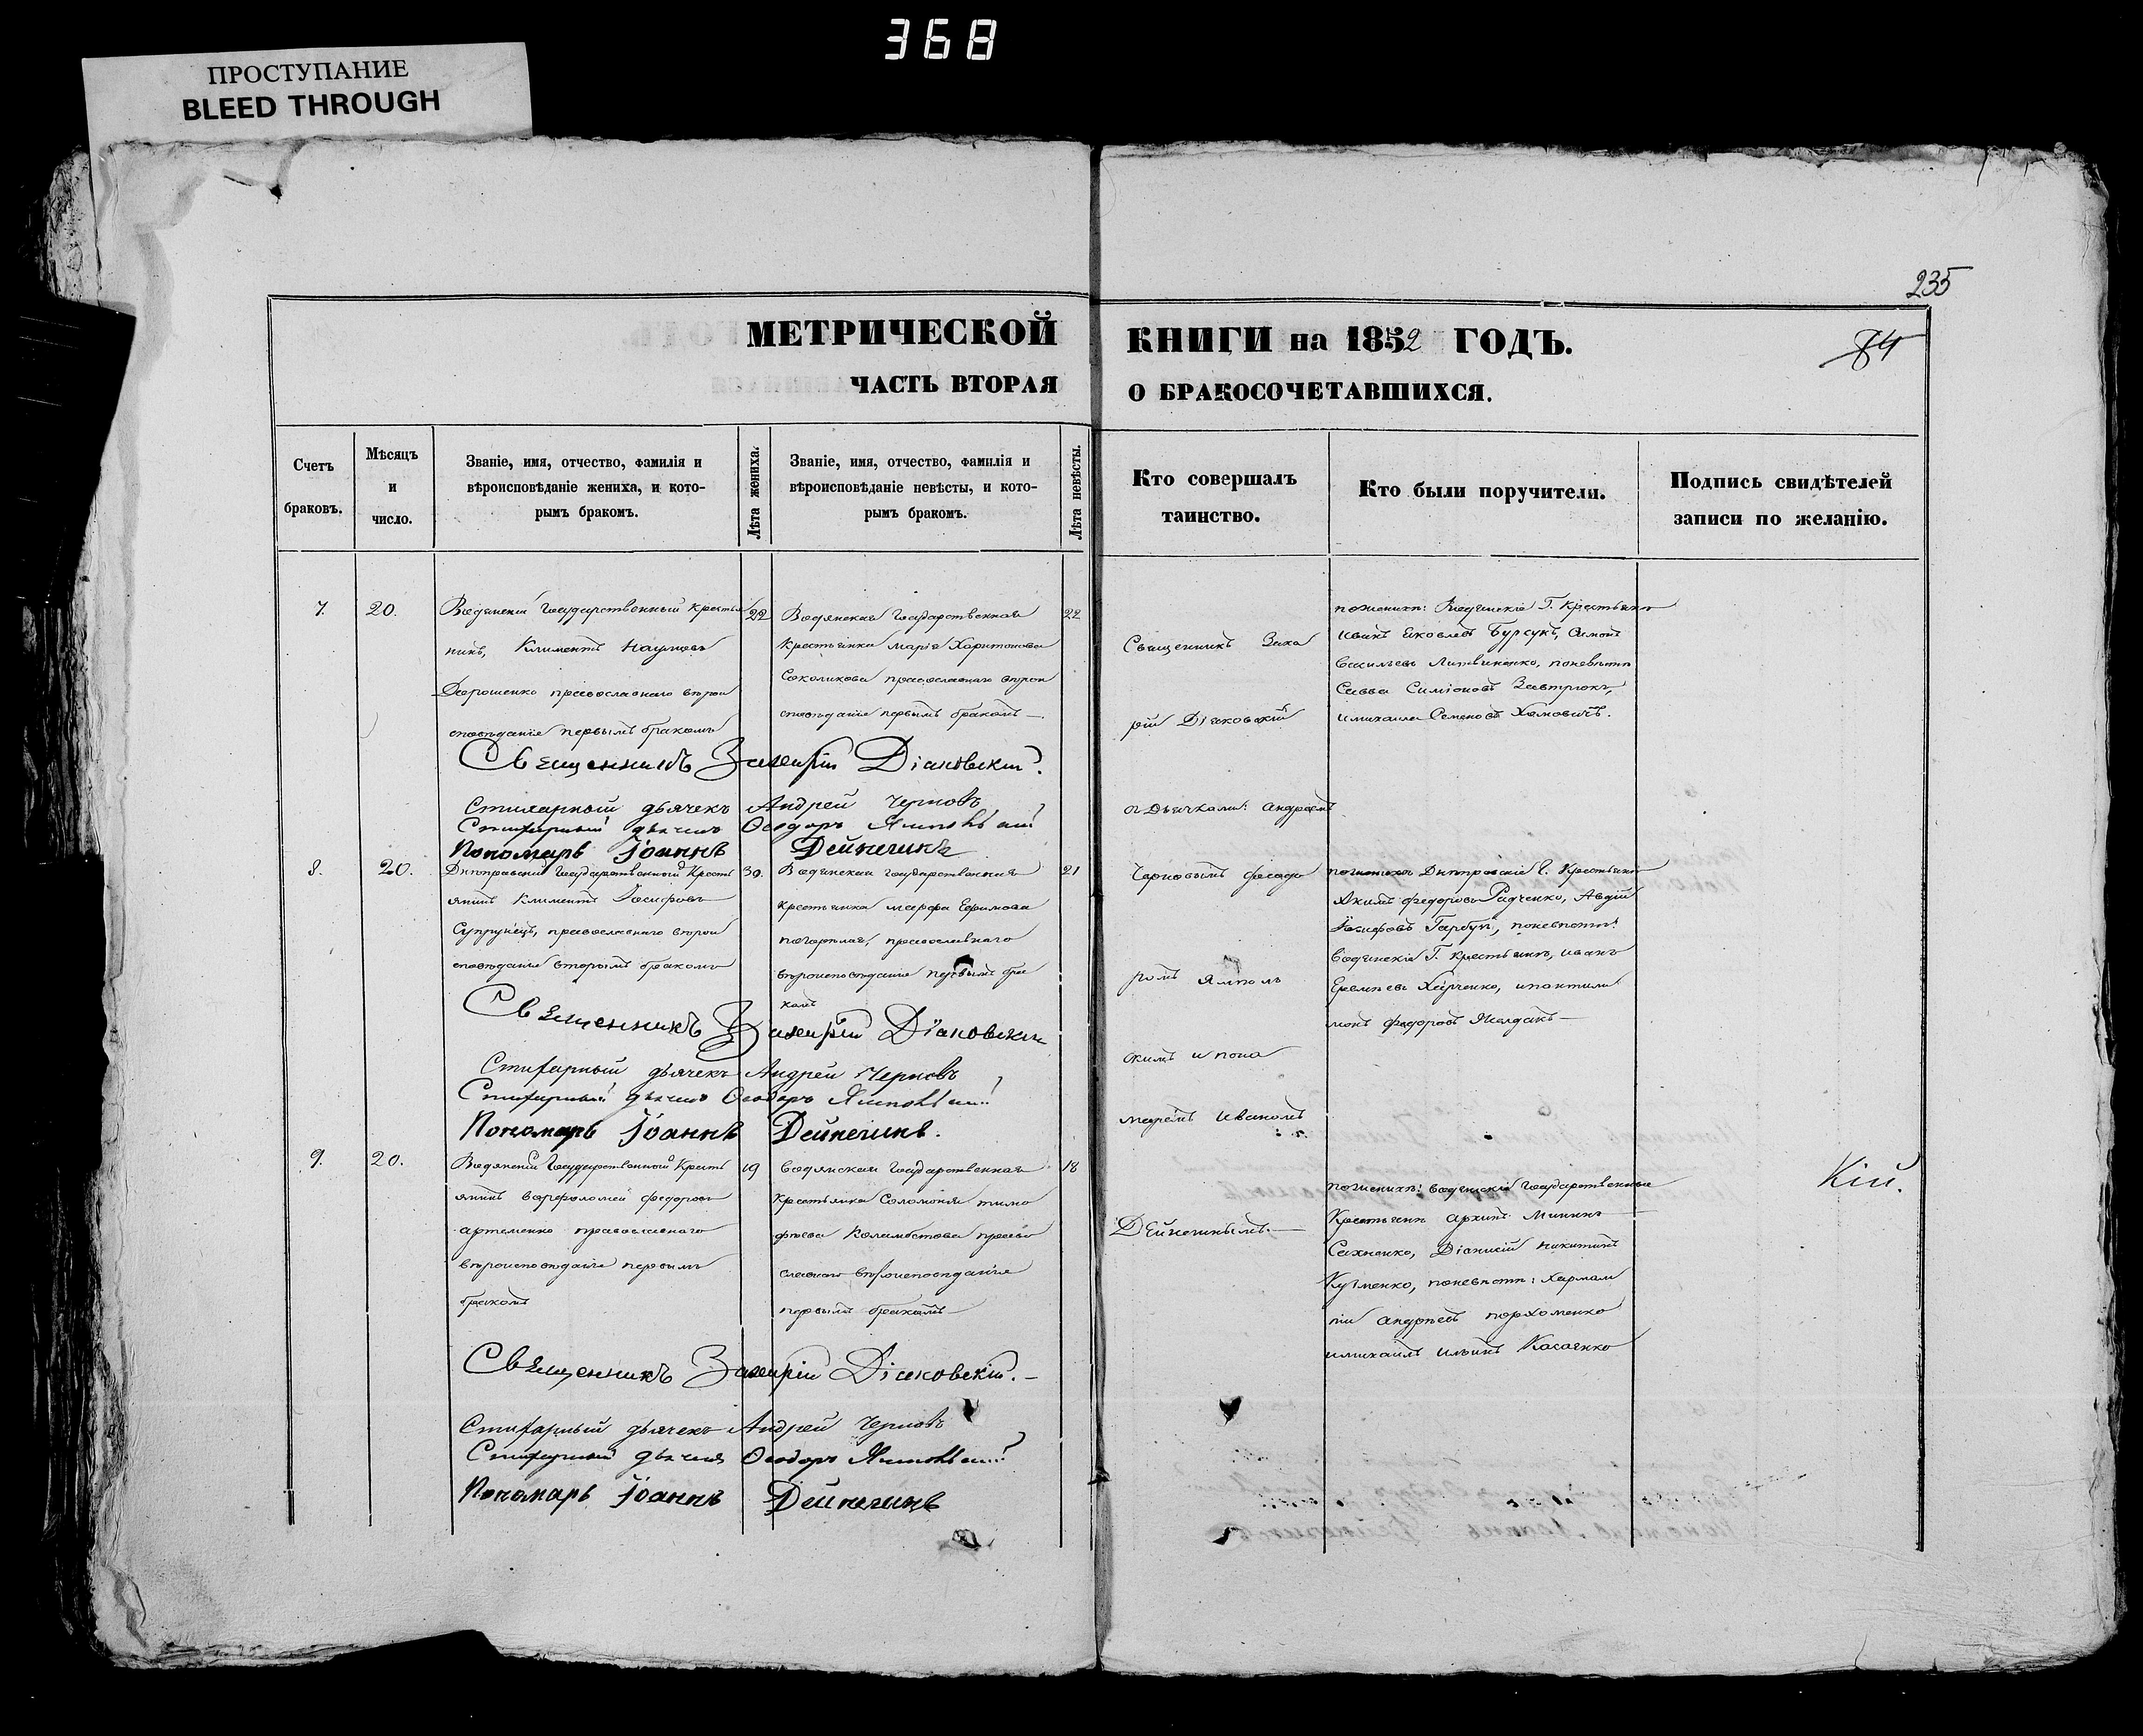 368
ПРОСТУПАНИЕ
BLEED THROUGH
235
МЕТРИЧЕСКОЙ КНИГИ на 1852 ГОДЪ.
84
ЧАСТЬ ВТОРАЯ О БРАКОСОЧЕТАВШИХСЯ.
Счетъ
браковъ.
Мѣсяцъ
и
число.
Званіе, имя, отчество, фамилія и
вѣроисповѣданіе жениха, и кото-
рымъ бракомъ.
Лѣта жениха.
Званіе, имя, отчество, фамилія и
вѣроисповѣданіе невѣсты, и кото-
рымъ бракомъ.
Лѣта невѣсты.
Кто совершалъ
таинство.
Кто были поручители.
Подпись свидѣтелей
записи по желанію.
7.
20.
Водянскій Государственный Крестья
нинъ, Климентъ Наумовъ
Дорошенко православнаго вѣрои
сповѣданія первымъ бракомъ
22
Водянская Государственная
Крестьянка Марія Харитонова
Соколикова православнаго вѣрои
сповѣданія первымъ бракомъ —.
22
Священникъ Заха
рій Діаковскій
съ Дьячками: Андреемъ
Черновымъ Феодо
ромъ Ямполь
скимъ и поно
маремъ Иваномъ
Дейнегинымъ. —
пожениху: Водянскіе Г. Крестьяне
Иванъ Яковлевъ Бурсукъ, Симонъ
Васильевъ Литвиненко, поневѣсте
Савва Симіоновъ Завтрюкъ,
имихаилъ Семеновъ Хомовичъ.
Священникъ Захарій Діаковскій.
Стихарный дьячекъ Андрей Черновъ
Стихарный дьячекъ Ѳеодоръ Ямпольскій
Пономарь Іоаннъ Дейнегинъ
8.
20.
Днѣпровскій Государственный Кресть
янинъ Климентъ Іосифовъ
Супрунецъ, православнаго вѣрои
сповѣданія вторымъ бракомъ
30.
Водянская Государственная
крестьянка Марфа Ефимова
погорѣлая, православнаго
вѣроисповѣданія первымъ бра
комъ
21
пожениху Днѣпровскіе Г. Крестьяне
Якимъ Федоровъ Радченко, Авдій
Іосифовъ Гарбузъ, поневѣсте:
Водянскіе Г. крестьяне, Иванъ
Еремѣевъ Харченко, ипантили
монъ Федоровъ Жолдакъ —
Священникъ Захарій Діаковскій
Стихарный дьячекъ Андрей Черновъ
Стихарный дьячекъ Ѳеодоръ Ямпольскій
Пономарь Іоаннъ Дейнегинъ.
9.
20.
Водянскій Государственный Кресть
янинъ Варфоломей Федоровъ
Артеменко православнаго
вѣроисповѣданія первымъ
бракомъ
19
Водянская Государственная
Крестьянка Соломонія Тимо
фѣева православ
славнаго вѣроисповѣданія
первымъ бракомъ —
18
пожениху: Водянскіе Государственные
Крестьяне Архипъ Мининъ
Сахненко, Діонисій Никитинъ
Кузменко, поневѣсте: Харлам
пій Андрѣевъ Пархоменко
имихаилъ Ильинъ Касаенко
Кій.
Священникъ Захарій Діаковскій. —
Стихарный дьячекъ Андрей Черновъ
Стихарный дьячекъ Ѳеодоръ Ямпольскій
Пономарь Іоаннъ Дейнегинъ